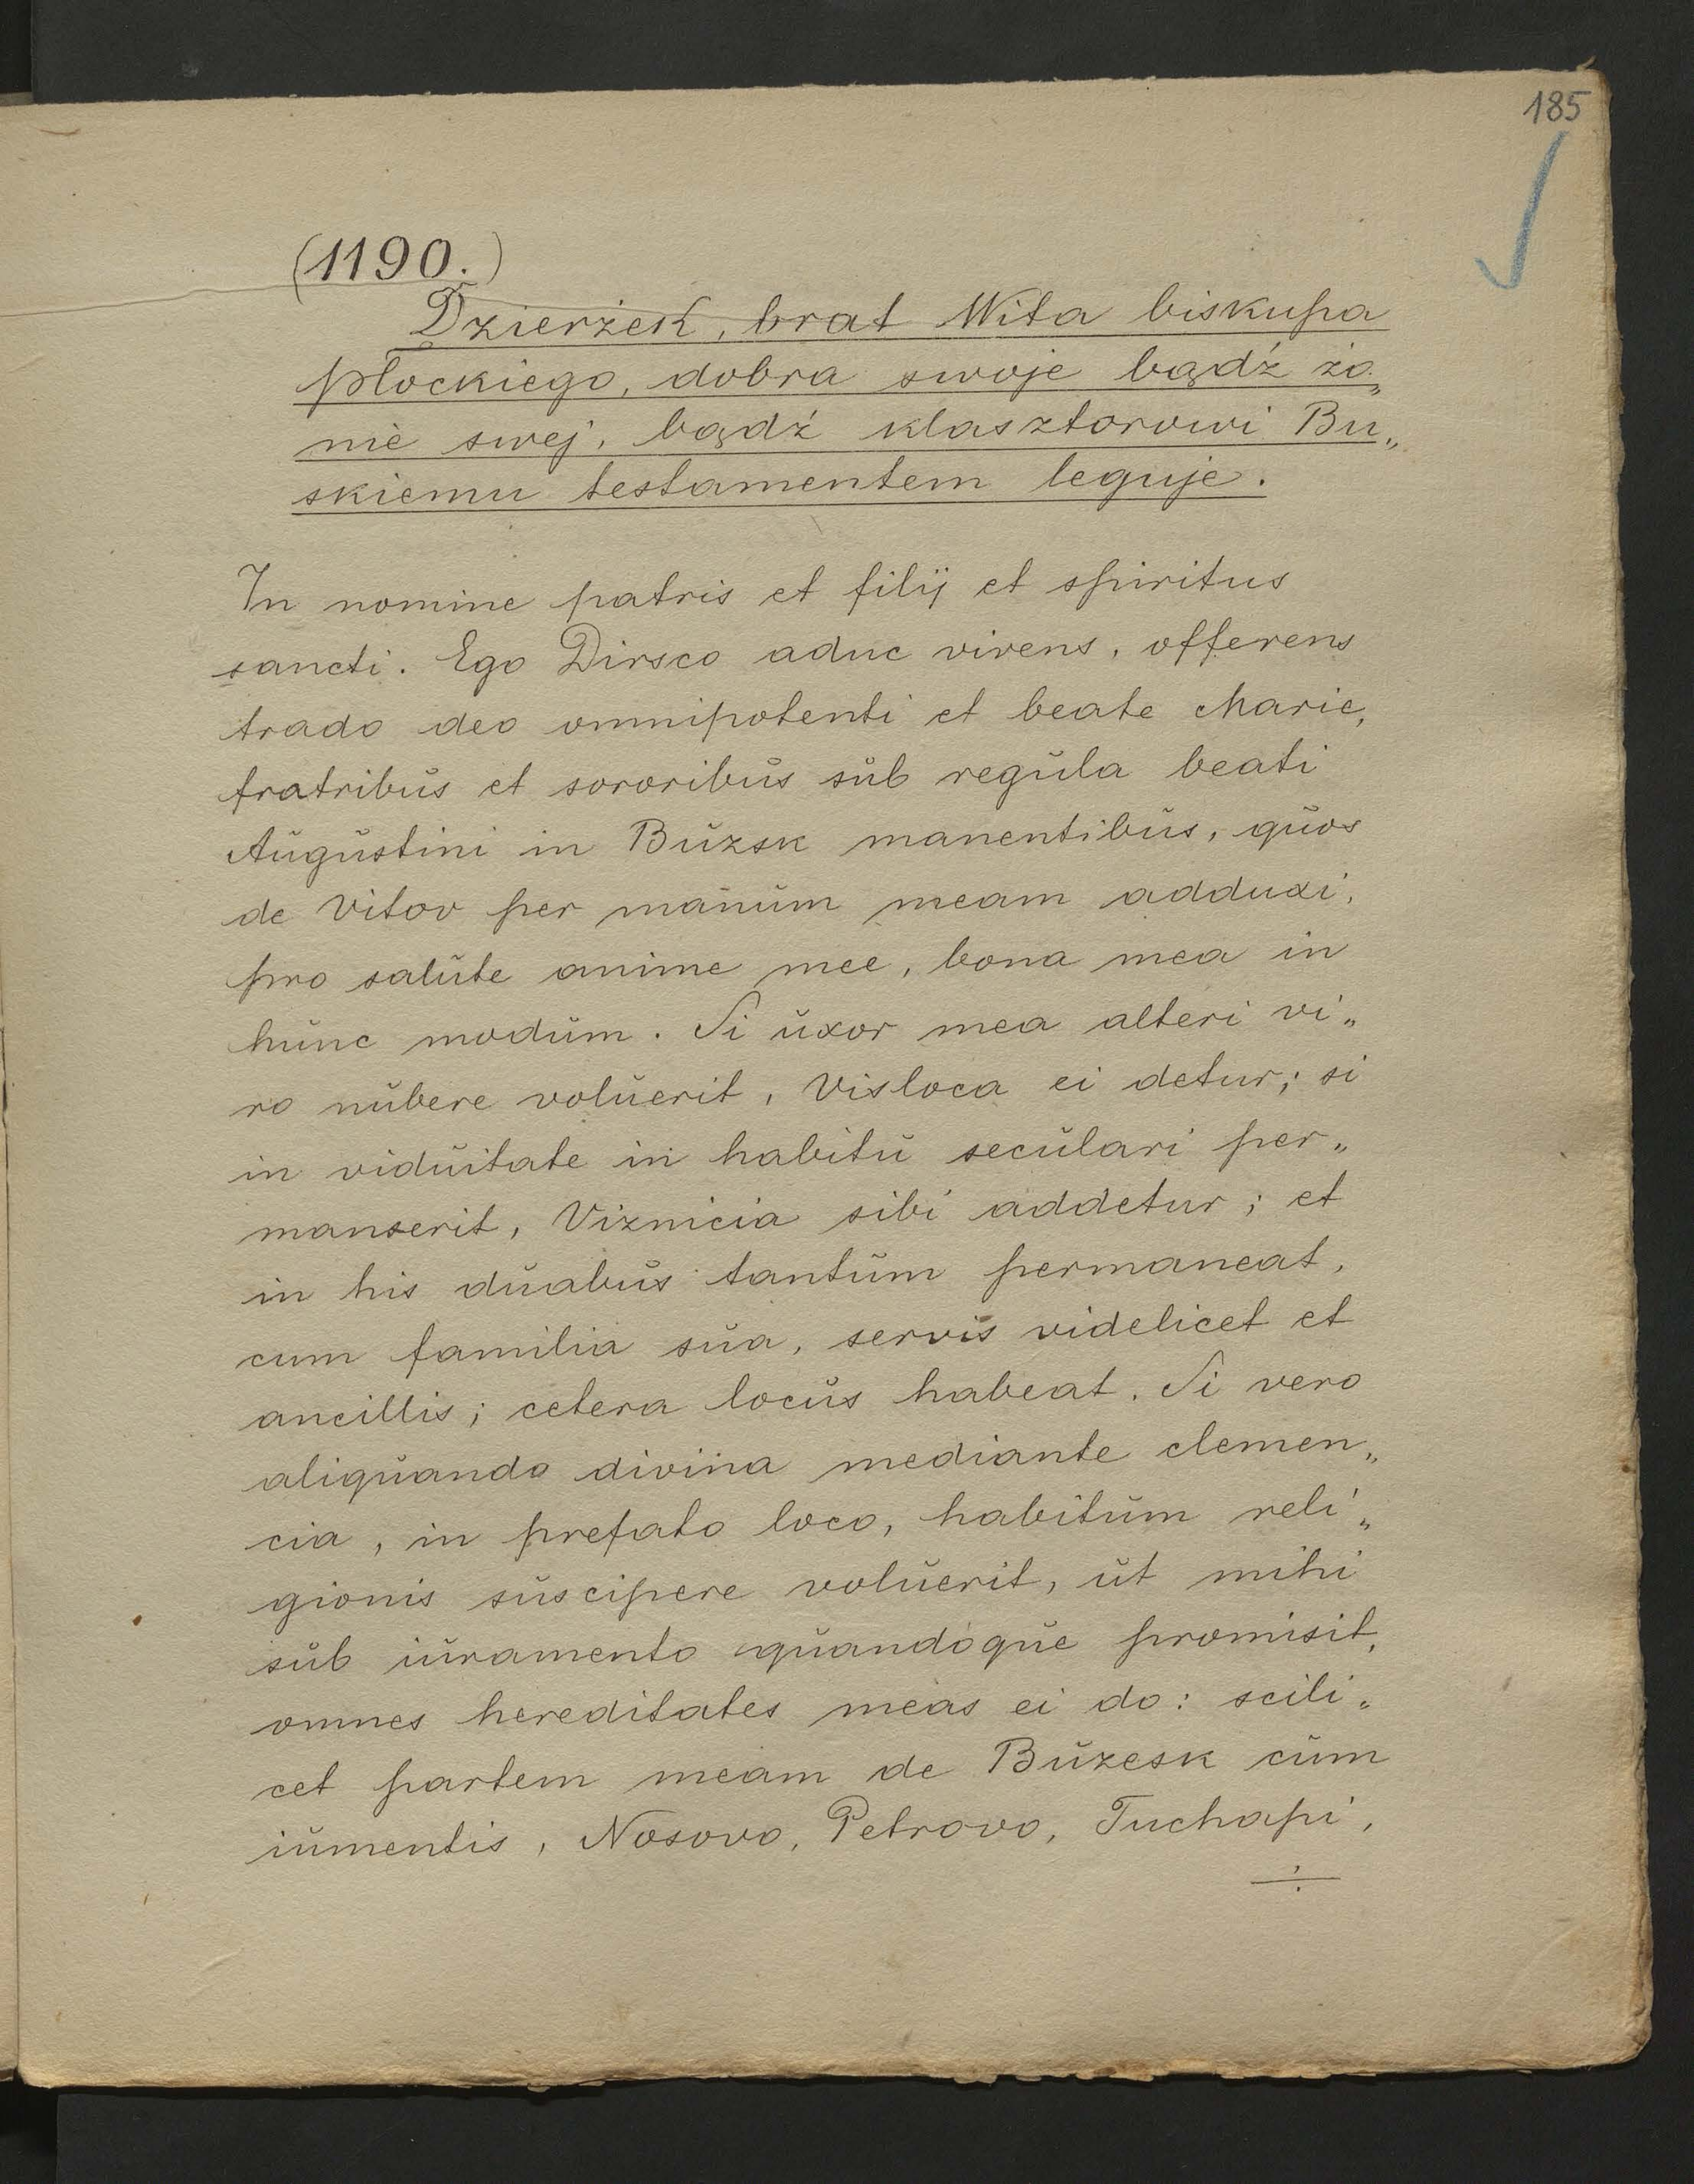 185
(1190.)
Dzierżek, brat Wita biskupa
płockiego, dobra swoje bądź żo„
nie swej, bądź klasztorowi Bu„
skiemu testamentem leguje.
In nomine patris et filij et spiritus
sancti. Ego Dirsco aduc vivens, offerens
trado deo omnipotenti et beate Marie,
fratribŭs et sororibŭs sŭb regŭla beati
Aŭgŭstini in Bŭzsk manentibŭs, qŭos
de Vitov per manŭm meam adduxi,
pro salŭte anime mee, bona mea in
hŭnc modŭm. Si ŭxor mea alteri vi„
ro nŭbere volŭerit, Visloca ei detur; si
in vidŭitate in habitŭ secŭlari per„
manserit, Viznicia sibi addetur; et
in his dŭabŭs tantŭm permaneat,
cum familia sŭa, servis videlicet et
ancillis; cetera locŭs habeat. Si vero
aliqŭando divina mediante clemen„
cia, in prefato loco, habitŭm reli„
gionis sŭscipere volŭerit, ŭt mihi
sŭb iŭramento qŭandoqŭe promisit,
omnes hereditates meas ei do: scili„
cet partem meam de Bŭzesk cŭm
iŭmentis, Nosovo, Petrovo, Tuchapi,
÷